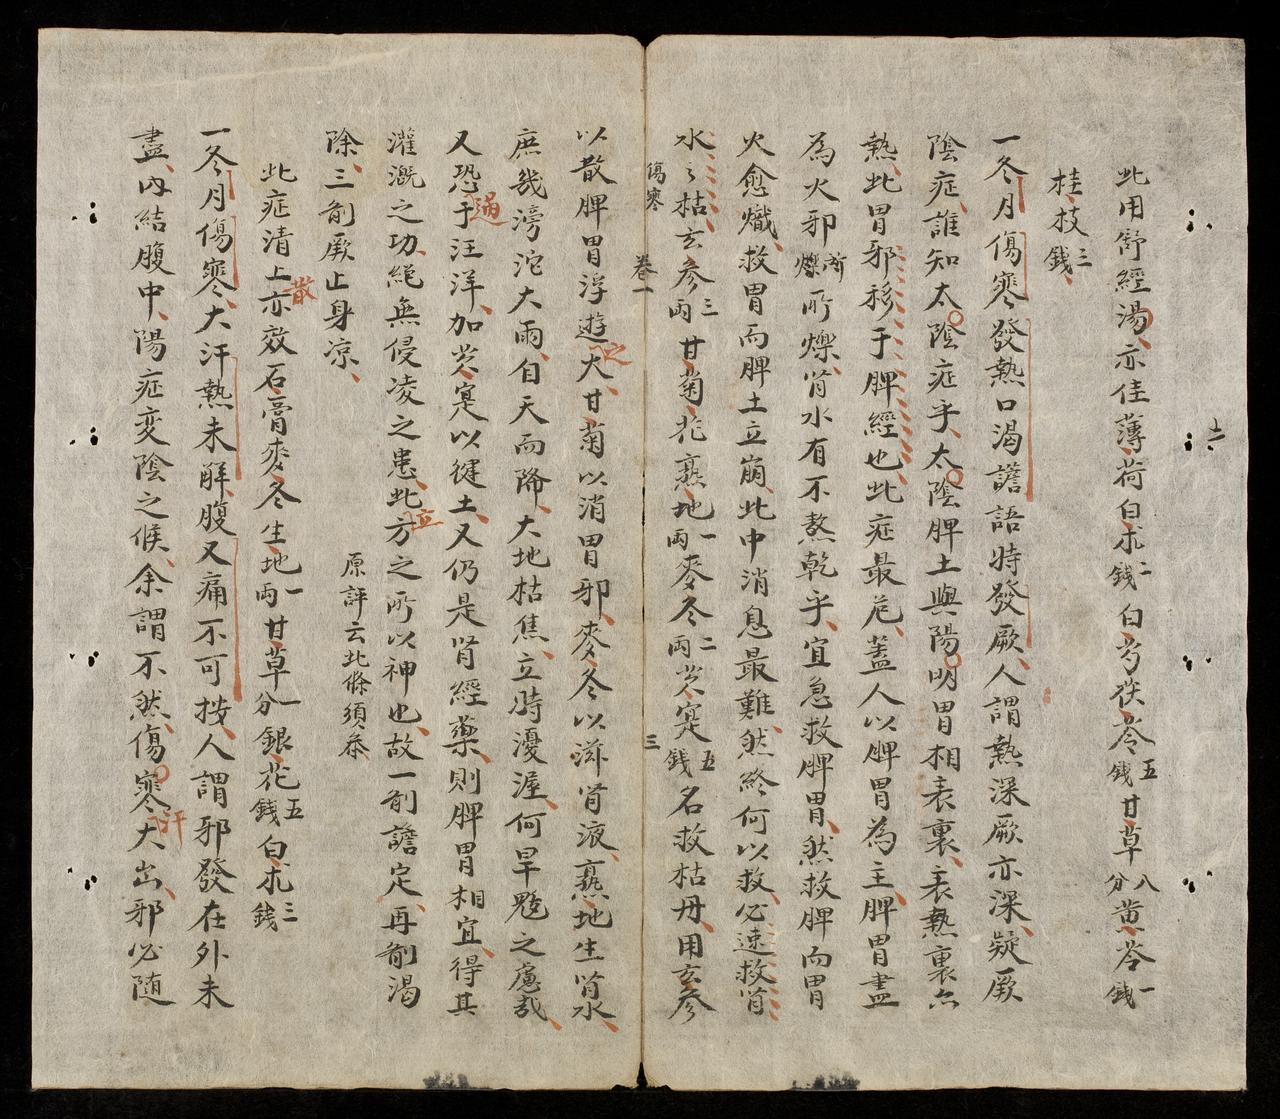 此用舒經湯、亦佳薄荷白朮二錢白芍茯苓五錢甘草八分黄芩一錢
桂枝三錢、
一冬月傷寒發熱口渴譫語時發厥、人謂熱深厥亦深、疑厥
陰症、誰知太陰症乎、太陰脾土與陽明胃相表裏、表熱裏亦
熱、此胃邪移于脾經也、此症最危、蓋人以脾胃為主、脾胃盡
為火邪所爍所爍、肾水有不熬乾乎、宜急救脾胃、然救脾而胃
火愈熾、救胃而脾土立崩、此中消息最難、然終何以救、必速救肾
水之枯、玄参三両甘菊花熟地一両麥冬二両芡寔五錢名救枯丹、用玄参
傷寒
卷一
三
以散脾胃浮遊之火、甘菊以消胃邪、麥冬以滋肾液、熟地生肾水、
庶幾滂沱大雨、自天而降、大地枯焦、立時優渥、何旱魃之慮哉、
又恐過于汪洋、加芡寔以健土、又仍是肾經藥、則脾胃相宜、得其
灌溉之功、絕無侵凌之患、此方立之所以神也、故一剤譫定、再剤渴
除、三剤厥止身凉、
原評云此條須叅
此症清上散亦效石膏麥冬生地一両甘草一分銀花五錢白朮三錢
一冬月傷寒、大汗熱未解、腹又痛不可按、人謂邪發在外未
盡、内結腹中、陽症変陰之候、余謂不然、傷寒汗大出、邪必随